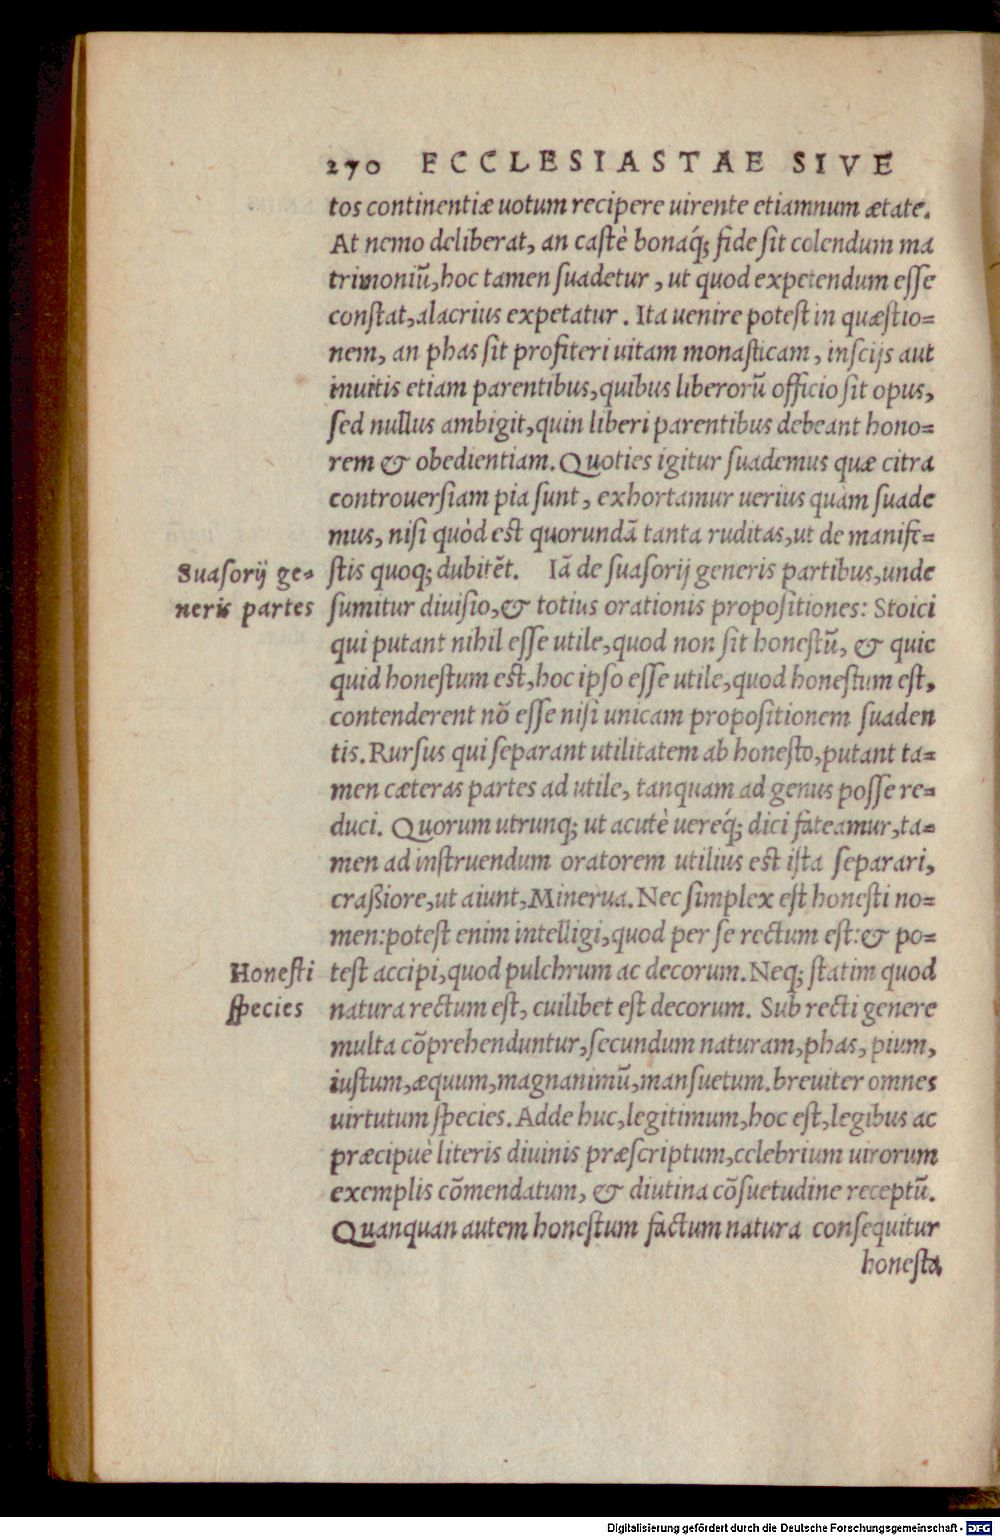 270 ECCLESIASTAE SIVE
tos continentiæ uotum recipere uirente etiamnum ætate.
At nemo deliberat, an castè bonaq́; fide sit colendum ma
trimoniũ, hoc tamen suadetur, ut quod expetendum esse
constat, alacrius expetatur. Ita uenire potest in quæstio=
nem, an phas sit profiteri uitam monasticam, inscijs aut
inuitis etiam parentibus, quibus liberorũ officio sit opus,
sed nullus ambigit, quin liberi parentibus debeant hono=
rem & obedientiam. Quoties igitur suademus quæ citra
controuersiam pia sunt, exhortamur uerius quàm suade
mus, nisi quòd est quorundã tanta ruditas, ut de manife=
Suasorij ge= stis quoq; dubitẽt. Iã de suasorij generis partibus, unde
neris partes sumitur diuisio, & totius orationis propositiones: Stoici
qui putant nihil esse utile, quod non sit honestũ, & quic
quid honestum est, hoc ipso esse utile, quod honestum est,
contenderent nõ esse nisi unicam propositionem suaden
tis. Rursus qui separant utilitatem ab honesto, putant ta=
men cæteras partes ad utile, tanquam ad genus posse re=
duci. Quorum utrunq; ut acutè uereq́; dici fateamur, ta=
men ad instruendum oratorem utilius est ista separari,
craßiore, ut aiunt, Minerua. Nec simplex est honesti no=
men: potest enim intelligi, quod per se rectum est: & po=
Honesti test accipi, quod pulchrum ac decorum. Neq; statim quod
species natura rectum est, cuilibet est decorum. Sub recti genere
multa cõprehenduntur, secundum naturam, phas, pium,
iustum, æquum, magnanimũ, mansuetum. breuiter omnes
uirtutum species. Adde huc, legitimum, hoc est, legibus ac
præcipuè literis diuinis præscriptum, celebrium uirorum
exemplis cõmendatum, & diutina cõsuetudine receptũ.
Quanquan autem honestum factum natura consequitur
honesta
Digitalisierung gefördert durch die Deutsche Forschungsgemeinschaft - DFG